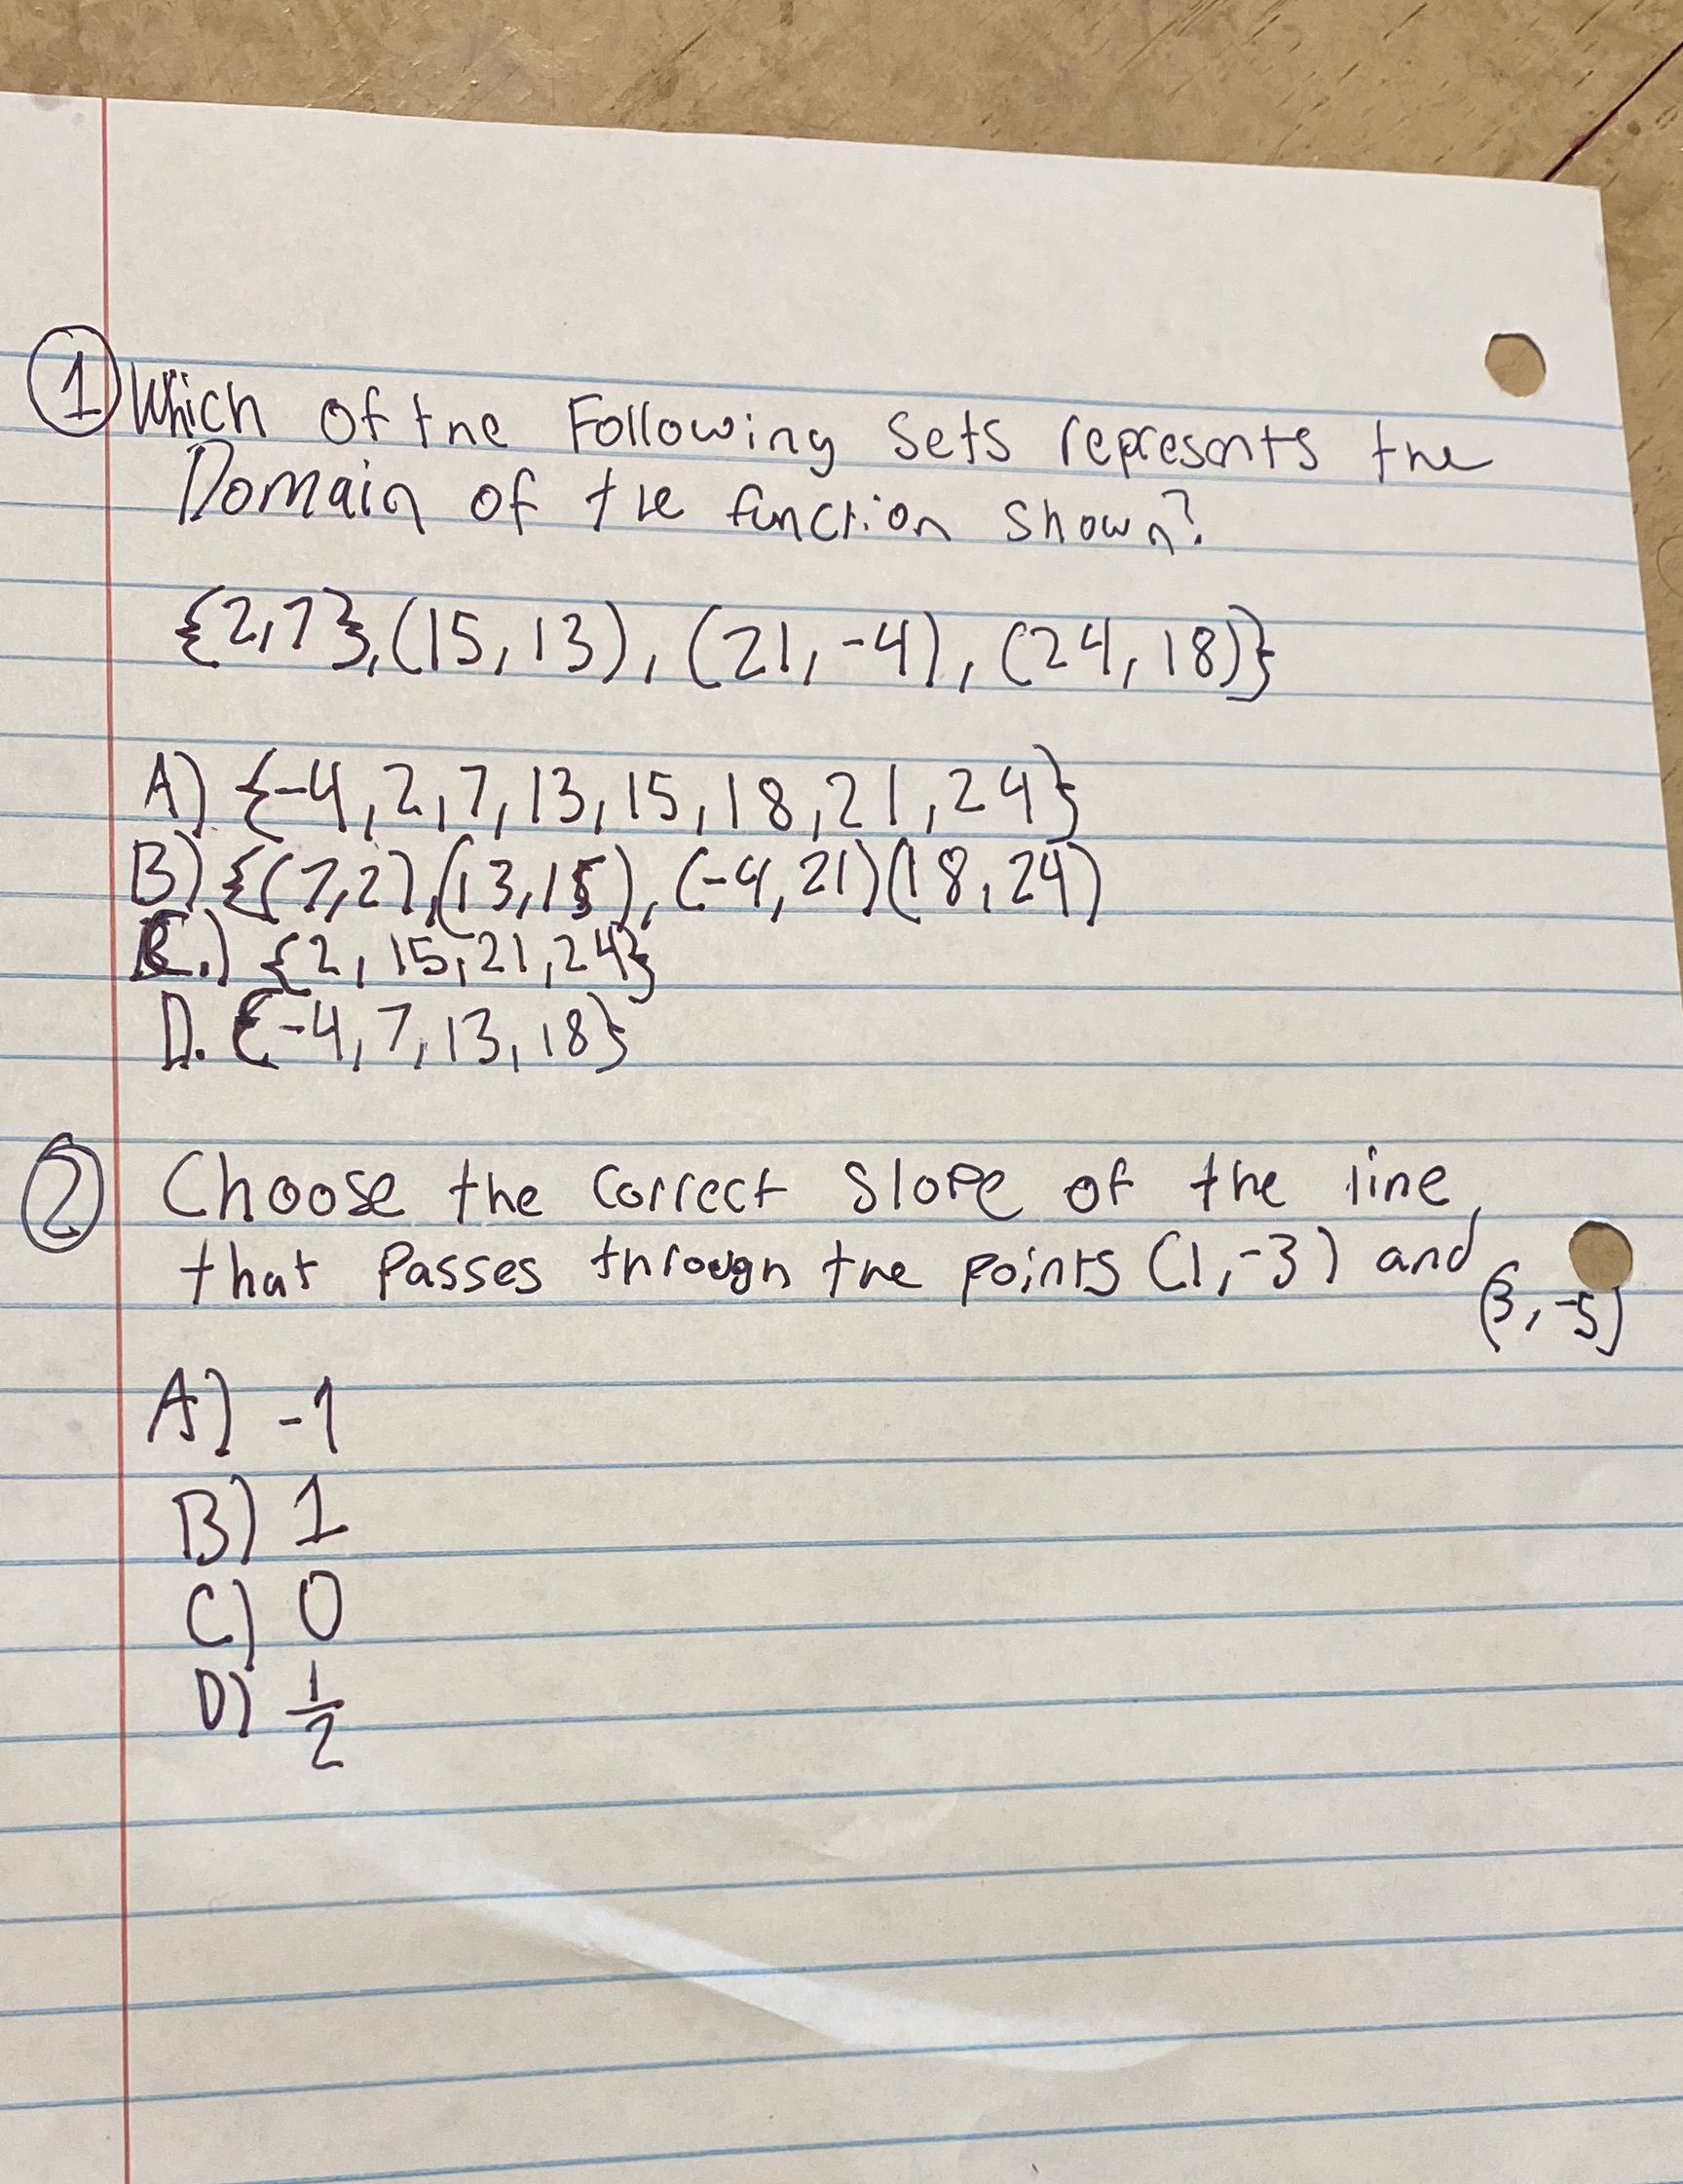 ① Which of the Following Sets represents the
Domain of the function shown?
{2,7},(15,13),(21,-4),(24,18)}
A) {-4,2,7,13,15,18,21,24}
B) {(7,2),(13,15),(-4,21)(18,24)
C.) {2,15,21,24}
D. {-4,7,13,18}
② Choose the correct Slope of the line
that Passes through the points (1,-3) and
(3,-5)
A) -1
B) 1
C) 0
D) 1/2